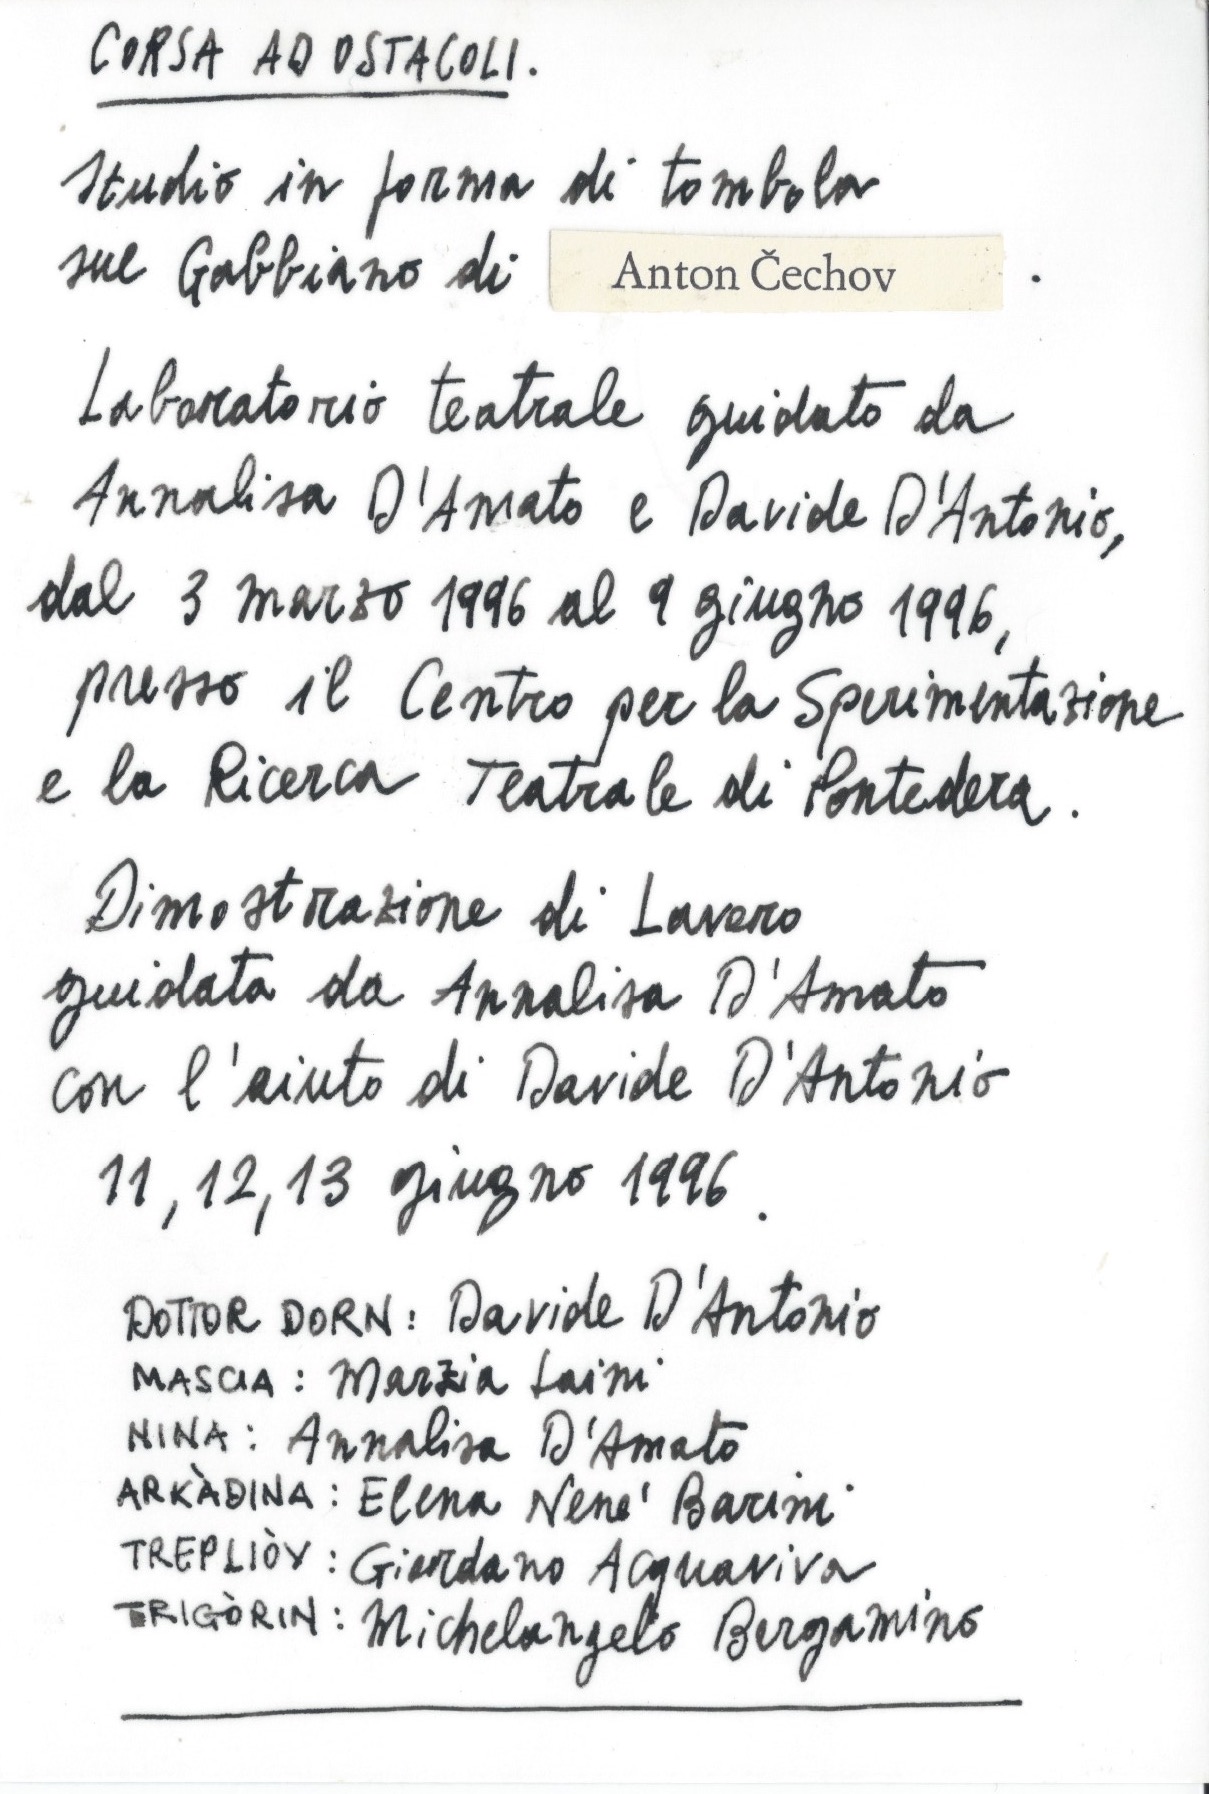 CORSA AD OSTACOLI.
Studio in forma di tombola
sul Gabbiano di Anton Čechov .
Laboratorio teatrale guidato da
Annalisa D'Amato e Davide D'Antonio,
dal 3 marzo 1996 al 9 giugno 1996,
presso il Centro per la Sperimentazione
e la Ricerca Teatrale di Pontedera.
Dimostrazione di Lavoro
guidata da Annalisa D'Amato
con l'aiuto di Davide D'Antonio
11, 12, 13 giugno 1996.
DOTTOR DORN: Davide D'Antonio
MASCIA: Marzia Laini
NINA: Annalisa D'Amato
ARKÀDINA: Elena Nene' Barini
TREPLIÒV: Giordano Acquaviva
TRIGÒRIN: Michelangelo Bergamino